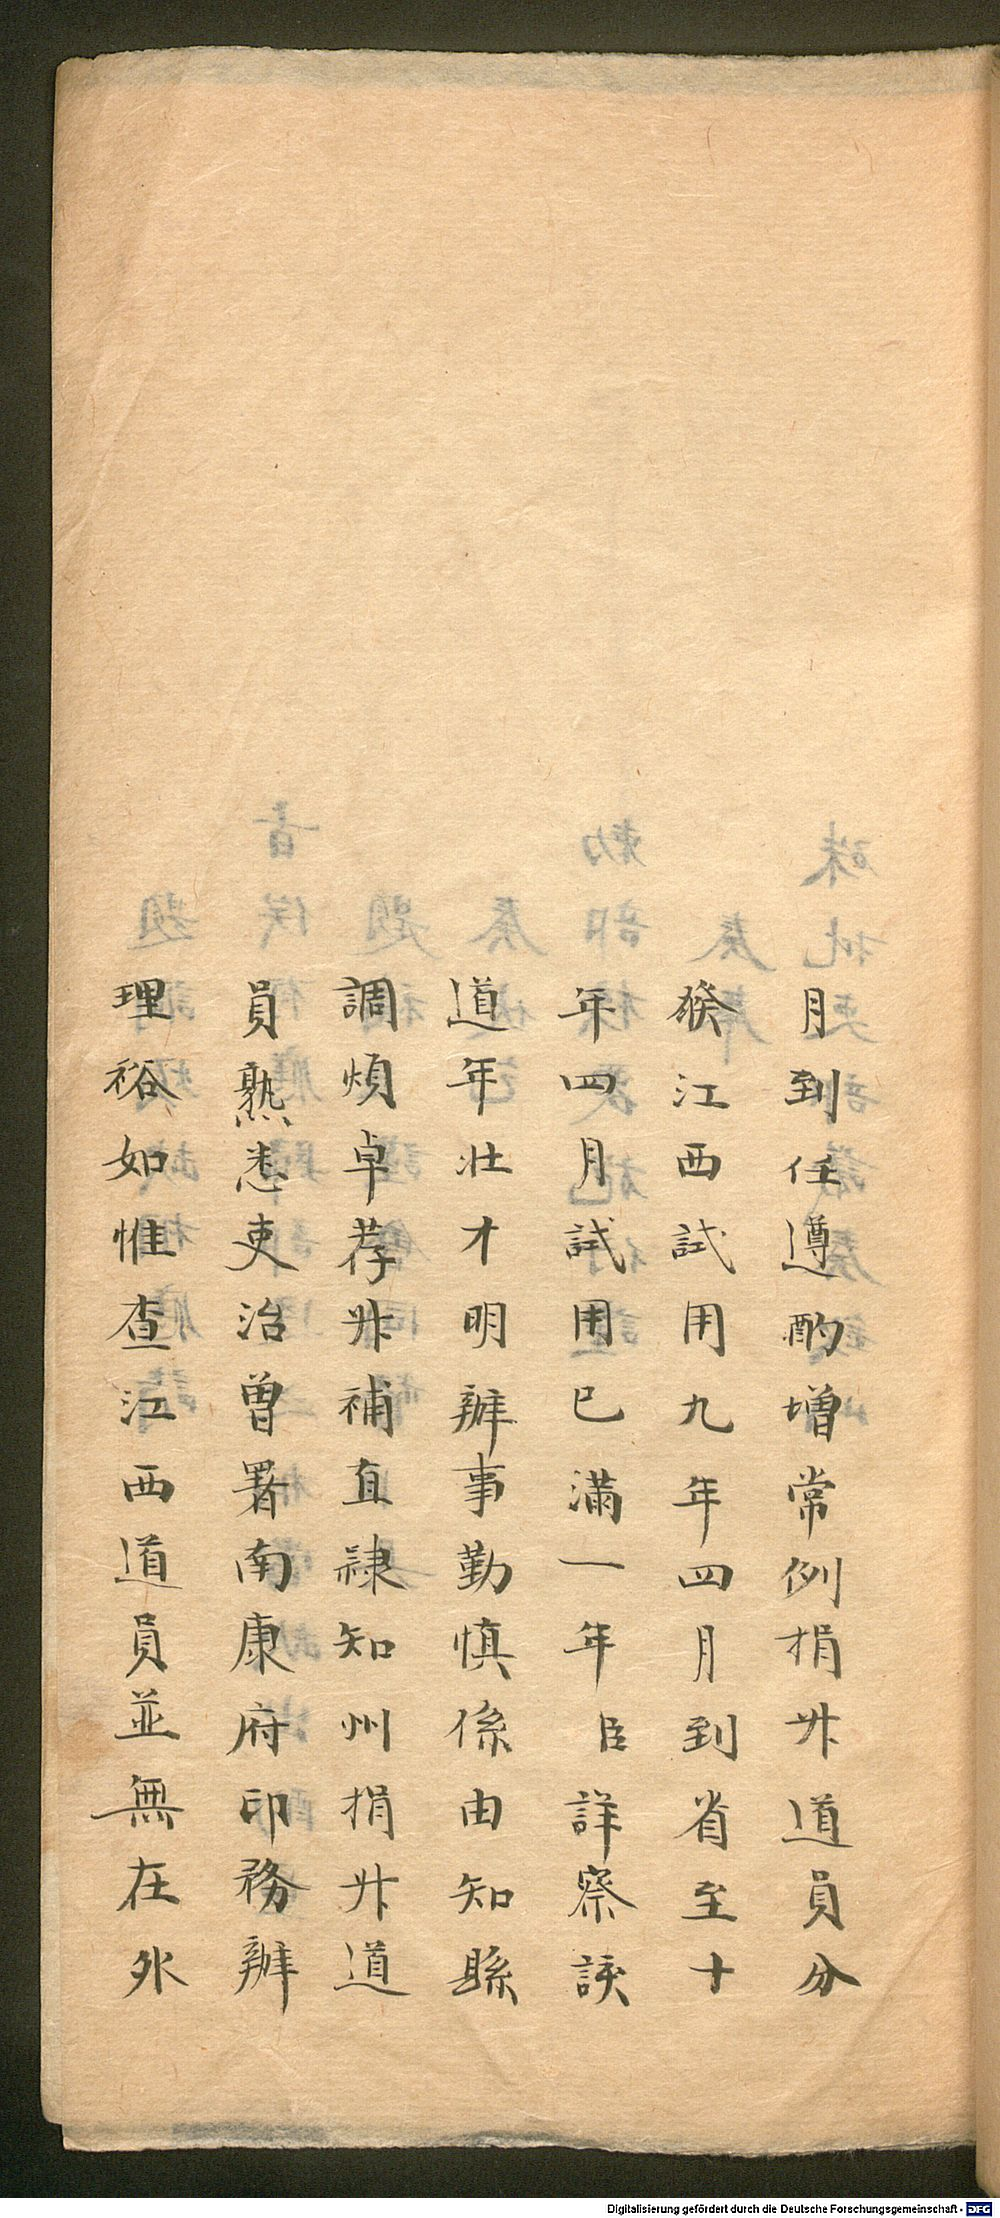 月到任遵酌增常例捐升道員分
發江西試用九年四月到省至十
年四月試用已滿一年臣詳察該
道年壯才明辦事勤慎係由知縣
調煩卓荐升補直隸知州捐升道
員熟悉吏治曾署南康府印務辦
理裕如惟查江西道員並無在外
Digitalisierung gefördert durch die Deutsche Forschungsgemeinschaft - DFG